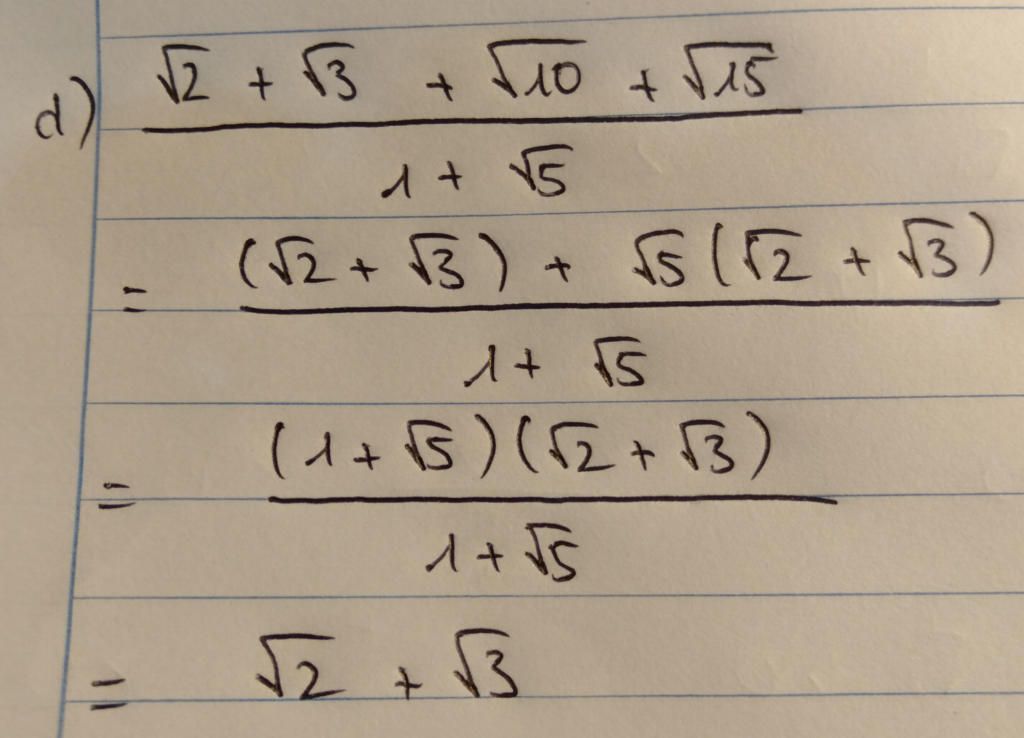 d) (√2 + √3 + √10 + √15) / (1 + √5)
= ((√2 + √3) + √5(√2 + √3)) / (1 + √5)
= ((1 + √5)(√2 + √3)) / (1 + √5)
= √2 + √3